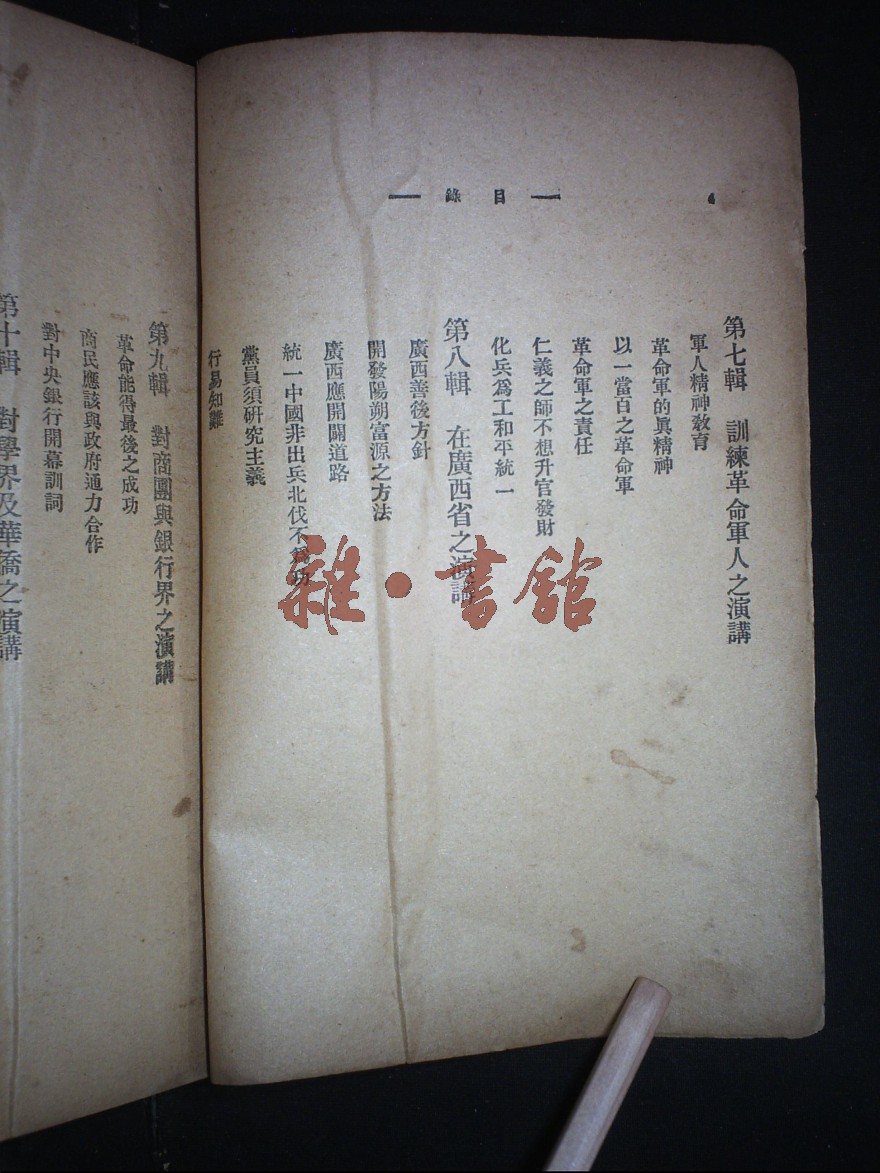 目錄
4
第七輯 訓練革命軍人之演講
軍人精神教育
革命軍的眞精神
以一當百之革命軍
革命軍之責任
仁義之師不想升官發財
化兵爲工和平統一
第八輯 在廣西省之演講
廣西善後方針
開發陽朔富源之方法
廣西應開闢道路
統一中國非出兵北伐不爲功
黨員須研究主義
行易知難
第九輯 對商團與銀行界之演講
革命能得最後之成功
商民應該與政府通力合作
對中央銀行開幕訓詞
第十輯 對學界及華僑之演講
雜·書館